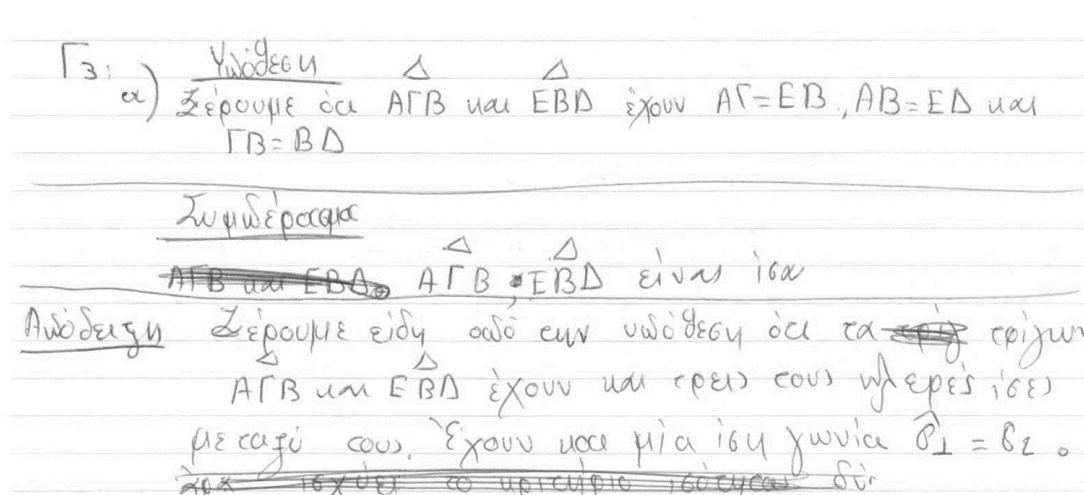 Γ3:
α) Υπόθεση
Ξέρουμε ότι ΑΓΒ και ΕΒΔ έχουν ΑΓ=ΕΒ, ΑΒ=ΕΔ και
ΓΒ=ΒΔ
Συμπέρασμα
ΑΓΒ και ΕΒΔ ΑΓΒ, ΕΒΔ είναι ίσα
Απόδειξη Ξέρουμε είδη από την υπόθεση ότι τα τριγ τρίγων
ΑΓΒ και ΕΒΔ έχουν και τρεις τους πλερές ίσες
μεταξύ τους. Έχουν και μία ίση γωνία β̂1 = β2.
άρα ισχύει το κριτήριο ισότητας